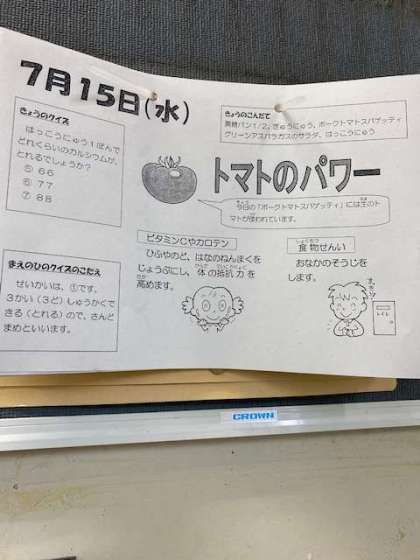 7月15日(水)
きょうのクイズ
はっこうにゅう1ぽんで
どれくらいのカルシウムが、
とれるでしょうか?
⑤ 66
⑥ 77
⑦ 88
きょうのこんだて
黒糖パン1/2、ぎゅうにゅう、ポークトマトスパゲッティ
グリーンアスパラガスのサラダ、はっこうにゅう
トマトのパワー
今日の「ポークトマトスパゲッティ」には生のト
マトが使われています。
まえのひのクイズのこたえ
せいかいは、①です。
3かい(3ど)しゅうかくで
きる(とれる)ので、さんど
まめといいます。
ビタミンCやカロテン
ひふやのど、はなのねんまくを
じょうぶにし、体の抵抗力を
高めます。
食物せんい
おなかのそうじを
します。
トイレ
CROWN